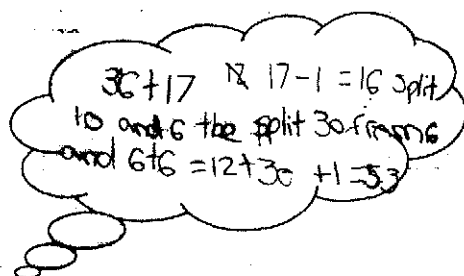 36+17 17-1=16 split
10 and 6 the split 30 from 6
and 6+6=12+30 +1=53